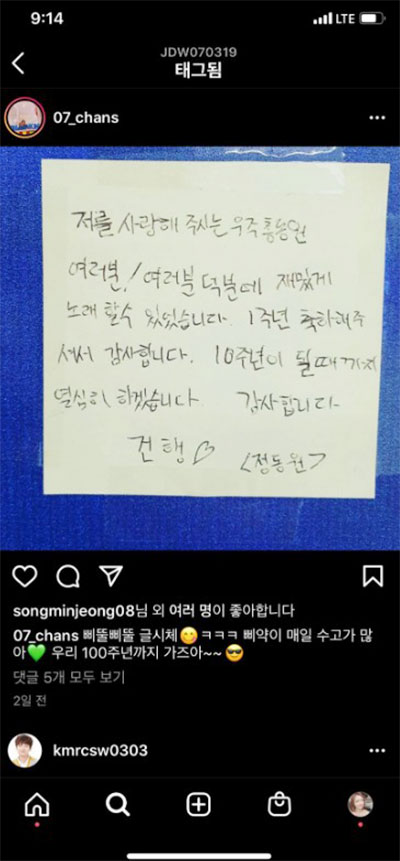 9:14
LTE
JDW070319
태그됨
07_chans
저를 사랑해 주시는 우주총동원
여러분! 여러분 덕분에 재밌게
노래 할수 있었습니다. 1주년 축하해주
셔서 감사합니다. 10주년이 될때 까지
열심히 하겠습니다 감사합니다
건행♡ <정동원>
songminjeong08님 외 여러 명이 좋아합니다
07_chans 삐뚤삐뚤 글시체😋ㅋㅋㅋ 삐약이 매일 수고가 많
아💚 우리 100주년까지 가즈아~~ 😎
댓글 5개 모두 보기
2일 전
kmrcsw0303